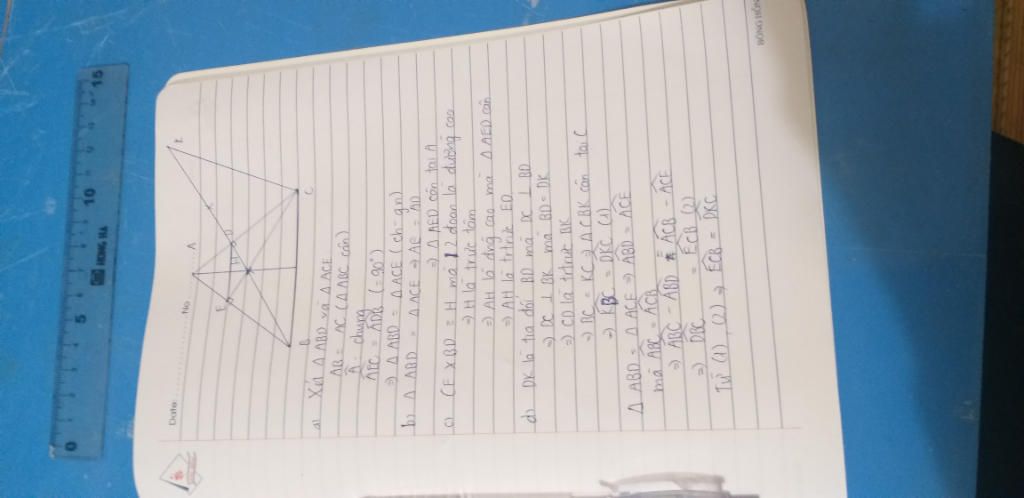 Date: No
A
K
E
D
H
B
C
a) Xét △ ABD và △ ACE
AB = AC (△ ABC cân)
Â : chung
AEC = ADB (= 90°)
⇒ △ ABD = △ ACE (ch-gn)
b) △ ABD = △ ACE ⇒ AE = AD
⇒ △ AED cân tại A
c) CE X BD ≡ H mà 2 đoạn là đường cao
⇒ H là trực tâm
⇒ AH là đng cao mà △ AED cân
⇒ AH là trtrực ED
d) DK là tia đối BD mà DC ⊥ BD
⇒ DC ⊥ BK mà BD = DK
⇒ CD là trtrực BK
⇒ BC = KC ⇒ △ CBK cân tại C
⇒ KBC = DKC (1)
△ ABD = △ ACE ⇒ ABD = ACE
mà ABC = ACB
⇒ ABC - ABD = ACB - ACE
⇒ DBC = ECB (2)
Từ (1), (2) ⇒ ECB = DKC
0 5 10 15
HONG HA